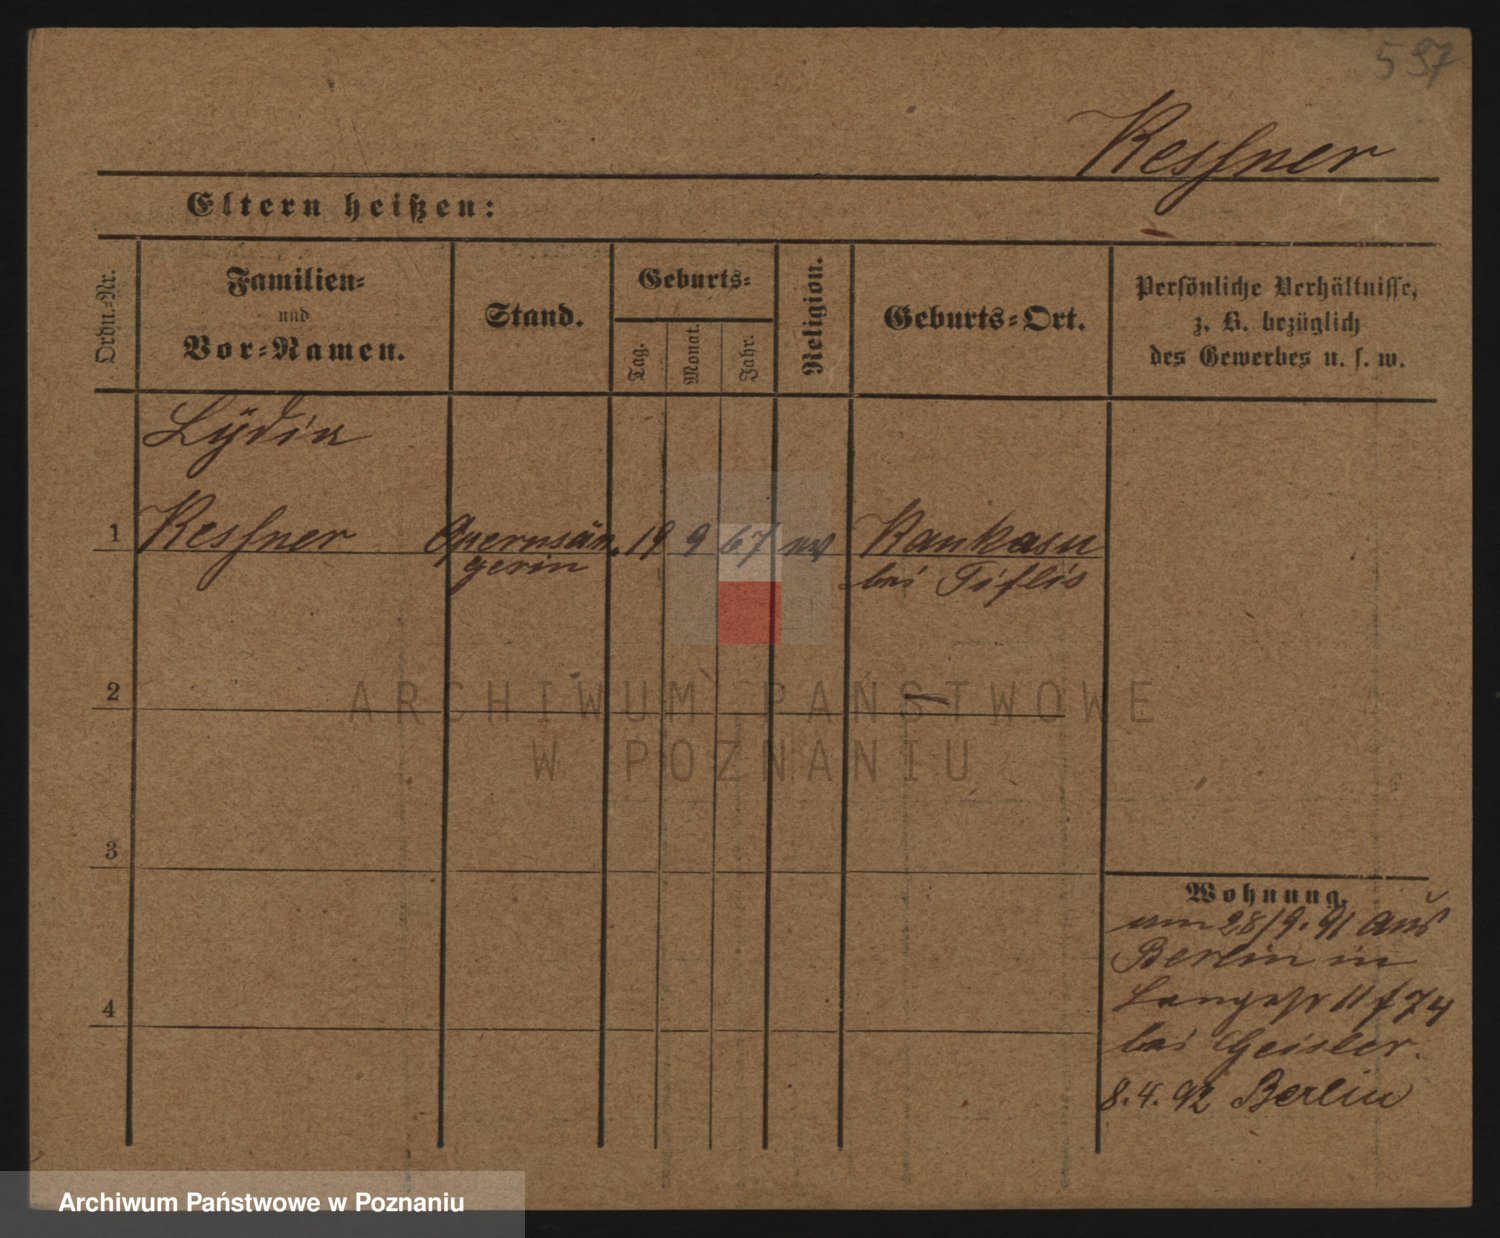 597
Kessner
Eltern heißen:
Ordn.-Nr.
Familien-
und
Vor-Namen.
Stand.
Geburts-
Tag.
Monat.
Jahr.
Religion.
Geburts-Ort.
Persönliche Verhältnisse,
z. B. bezüglich
des Gewerbes u. s. w.
Lÿdia
1 Kessner Opernsän 19 9 67 ev Kaukasu
gerin bei Tiflis
2
3
4
Wohnung.
am 28/9. 91 aus
Berlin in
Langestr 11 f 74
bei Geisler.
8.4.92 Berlin
ARCHIWUM PAŃSTWOWE
W POZNANIU
Archiwum Państwowe w Poznaniu